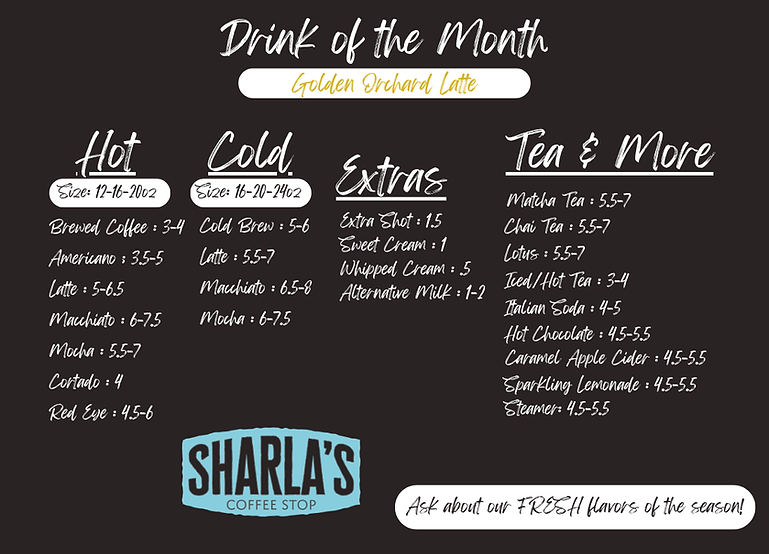 Drink of the Month
Golden Orchard Latte
Hot
Size: 12-16-20oz
Brewed Coffee : 3-4
Americano : 3.5-5
Latte : 5-6.5
Macchiato : 6-7.5
Mocha : 5.5-7
Cortado : 4
Red Eye : 4.5-6
Cold
Size: 16-20-24oz
Cold Brew : 5-6
Latte : 5.5-7
Macchiato : 6.5-8
Mocha : 6-7.5
Extras
Extra Shot : 1.5
Sweet Cream : 1
Whipped Cream : .5
Alternative Milk : 1-2
Tea & More
Matcha Tea : 5.5-7
Chai Tea : 5.5-7
Lotus : 5.5-7
Iced/Hot Tea : 3-4
Italian Soda : 4-5
Hot Chocolate : 4.5-5.5
Caramel Apple Cider : 4.5-5.5
Sparkling Lemonade : 4.5-5.5
Steamer: 4.5-5.5
SHARLA'S
COFFEE STOP
Ask about our FRESH flavors of the season!